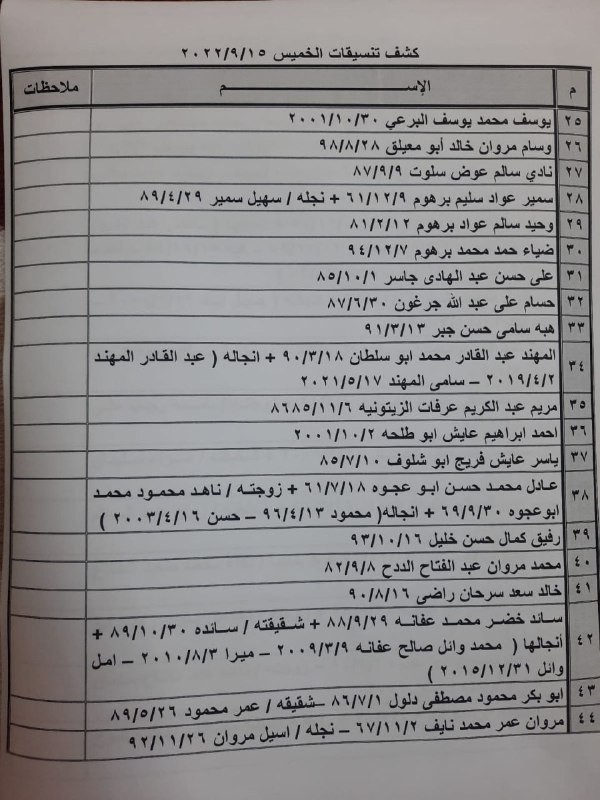 كشف تنسيقات الخميس ٢٠٢٢/٩/١٥
م الإســـم ملاحظات
٢٥ يوسف محمد يوسف البرعي ٢٠٠١/١٠/٣٠
٢٦ وسام مروان خالد أبو معيلق ٩٨/٨/٢٨
٢٧ نادي سالم عوض سلوت ٨٧/٩/٩
٢٨ سمير عواد سليم برهوم ٦١/١٢/٩ + نجله / سهيل سمير ٨٩/٤/٢٩
٢٩ وحيد سالم عواد برهوم ٨١/٢/١٢
٣٠ ضياء حمد محمد برهوم ٩٤/١٢/٧
٣١ على حسن عبد الهادى جاسر ٨٥/١٠/١
٣٢ حسام على عبد الله جرغون ٨٧/٦/٣٠
٣٣ هبه سامى حسن جبر ٩١/٣/١٣
٣٤ المهند عبد القادر محمد ابو سلطان ٩٠/٣/١٨ + انجاله ( عبد القادر المهند
٢٠١٩/٤/٢ – سامى المهند ٢٠٢١/٥/١٧
٣٥ مريم عبد الكريم عرفات الزيتونيه ٨٦٨٥/١١/٦
٣٦ احمد ابراهيم عايش ابو طلحه ٢٠٠١/١٠/٢
٣٧ ياسر عايش فريج ابو شلوف ٨٥/٧/١٠
٣٨ عادل محمد حسن ابو عجوه ٦١/٧/١٨ + زوجته / ناهد محمود محمد
ابوعجوه ٦٩/٩/٣٠ + انجاله( محمود ٩٦/٤/١٣ – حسن ٢٠٠٣/٤/١٦ )
٣٩ رفيق كمال حسن خليل ٩٣/١٠/١٦
٤٠ محمد مروان عبد الفتاح الددح ٨٢/٩/٨
٤١ خالد سعد سرحان راضى ٩٠/٨/١٦
٤٢ سائد خضر محمد عفانه ٨٨/٩/٢٩ + شقيقته / سائده ٨٩/١٠/٣٠ +
أنجالها ( محمد وائل صالح عفانه ٢٠٠٩/٣/٩ – ميرا ٢٠١٠/٨/٣ – امل
وائل ٢٠١٥/١٢/٣١ )
٤٣ ابو بكر محمود مصطفى دلول ٨٦/٧/١ –شقيقه / عمر محمود ٨٩/٥/٢٦
٤٤ مروان عمر محمد نايف ٦٧/١١/٢ – نجله / اسيل مروان ٩٢/١١/٢٦